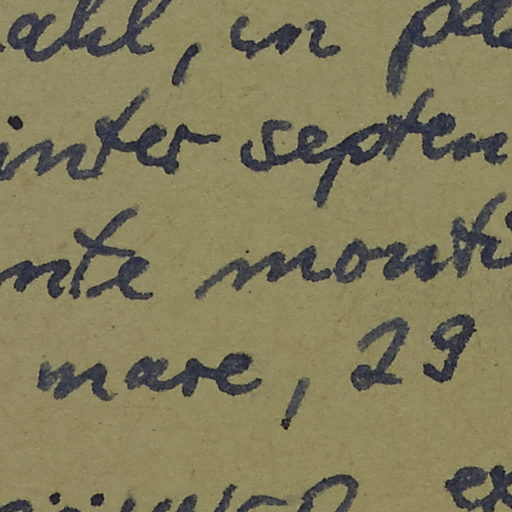 ahl, in pas
inter septen
nte monti
mare, 29
ex